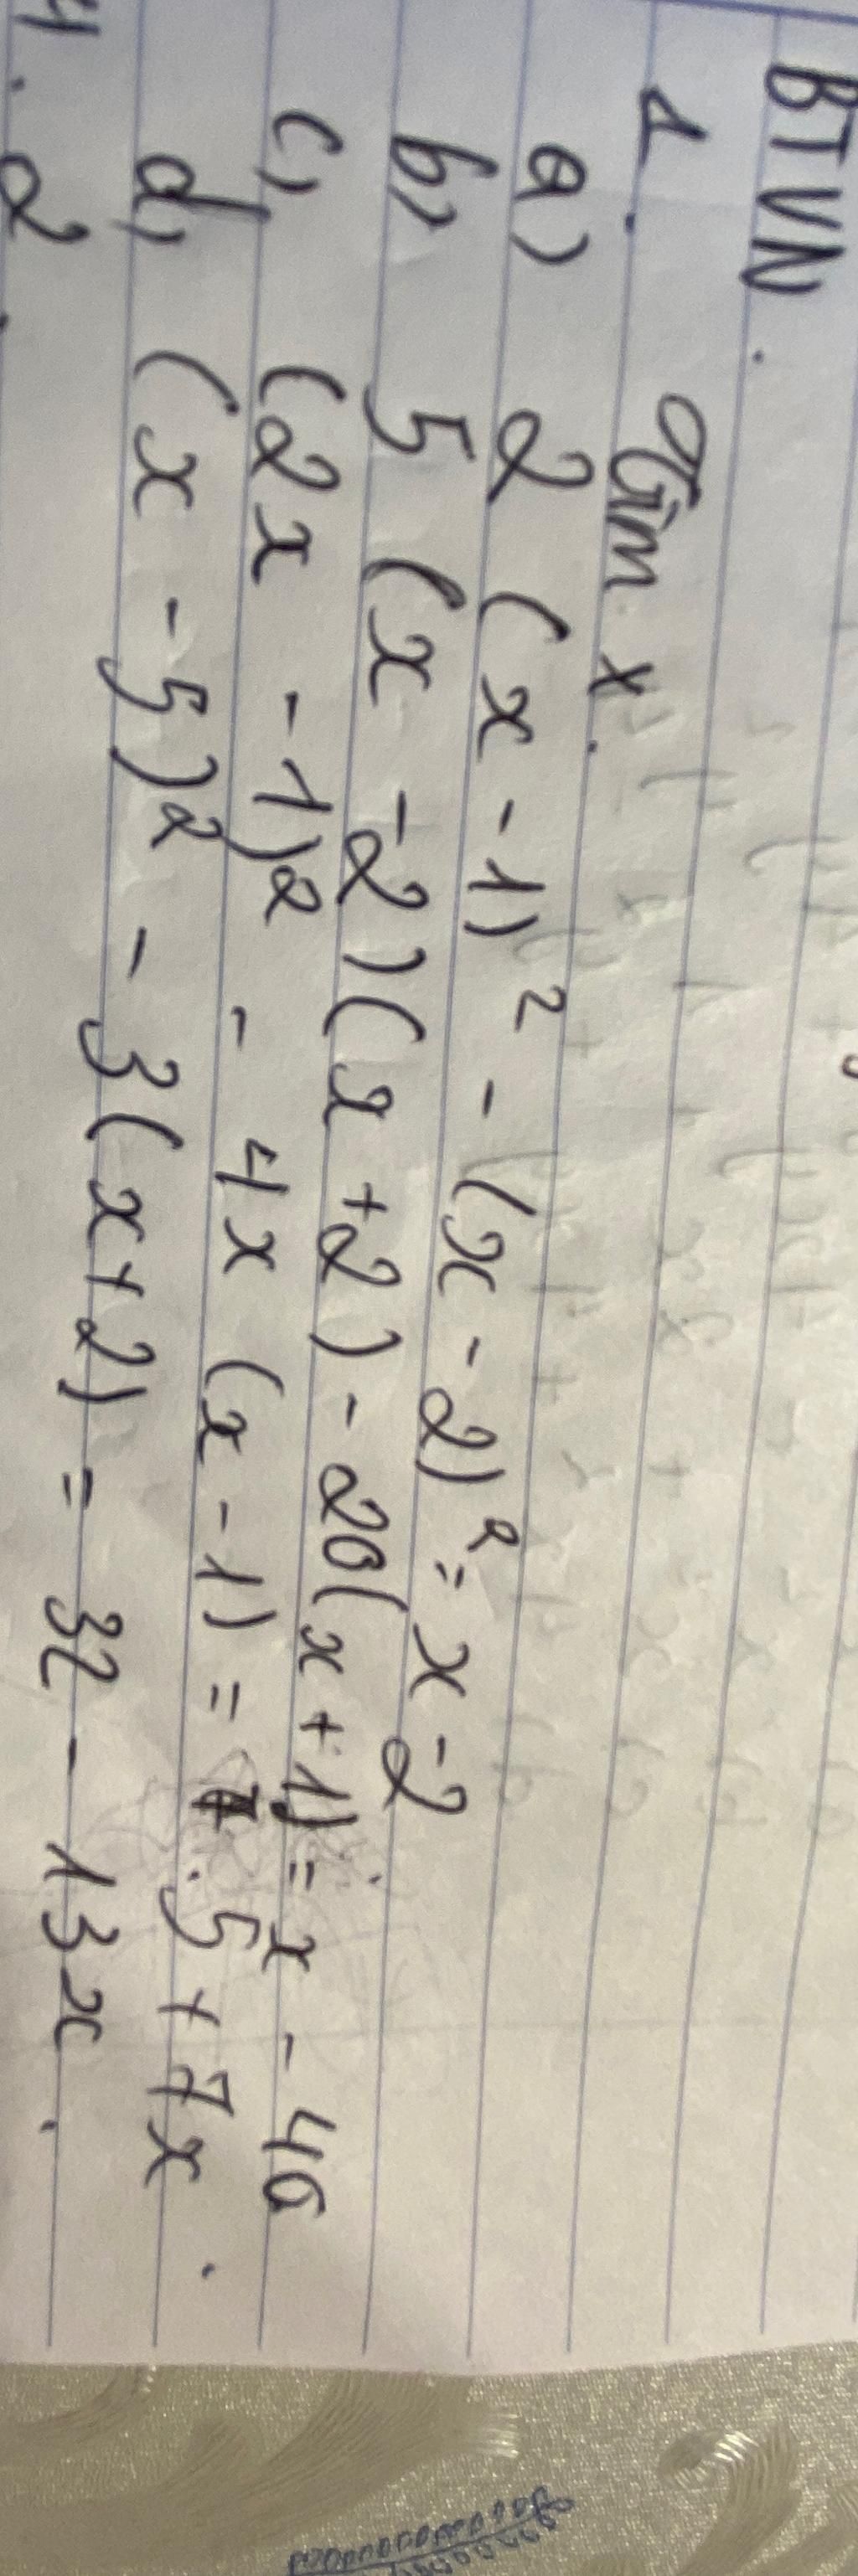 BTVN.
1. Tìm x.
a) 2 (x - 1)² - (x - 2)² = x - 2
b) 5 (x - 2)(x + 2) - 20(x + 1) = x - 40
c) (2x - 1)² - 4x (x - 1) = 5 + 7x.
d) (x - 5)² - 3(x + 2) = 32 - 13x.
2